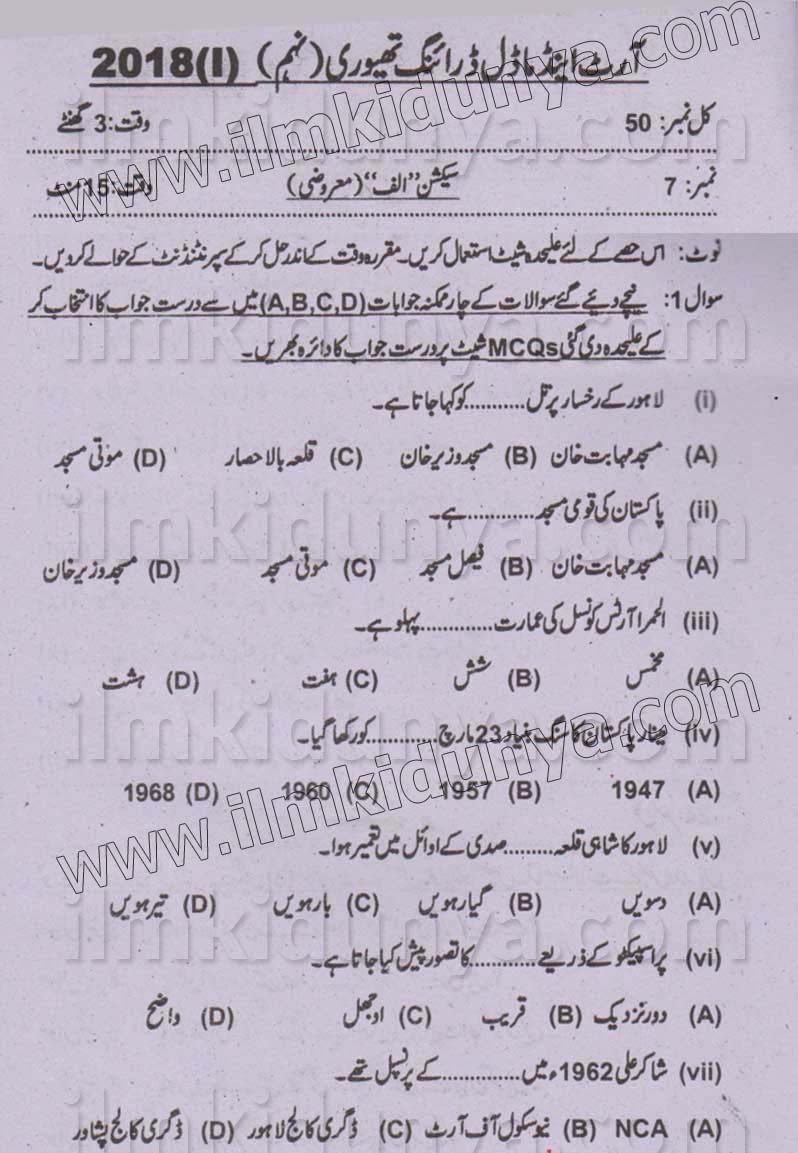 آرٹ اینڈ ماڈل ڈرائنگ تھیوری (نہم) 2018(I)
کل نمبر: 50 وقت: 3 گھنٹے
نمبر: 7 سیکشن "الف" (معروضی) وقت: 15 منٹ
نوٹ: اس حصے کے لئے علیحدہ شیٹ استعمال کریں۔ مقررہ وقت کے اندر حل کر کے سپرنٹنڈنٹ کے حوالے کر دیں۔
سوال 1: نیچے دیئے گئے سوالات کے چار ممکنہ جوابات (A,B,C,D) میں سے درست جواب کا انتخاب کر
کے علیحدہ دی گئی MCQs شیٹ پر درست جواب کا دائرہ بھریں۔
(i) لاہور کے رخسار پر تل ........... کو کہا جاتا ہے۔
(A) مسجد مہابت خان (B) مسجد وزیر خان (C) قلعہ بالا حصار (D) موتی مسجد
(ii) پاکستان کی قومی مسجد ............ ہے۔
(A) مسجد مہابت خان (B) فیصل مسجد (C) موتی مسجد (D) مسجد وزیر خان
(iii) الحمرا آرٹس کونسل کی عمارت ............ پہلو ہے۔
(A) مخمس (B) شش (C) ہفت (D) ہشت
(iv) مینار پاکستان کا سنگ بنیاد 23 مارچ ............ کو رکھا گیا۔
(A) 1947 (B) 1957 (C) 1960 (D) 1968
(v) لاہور کا شاہی قلعہ ......... صدی کے اوائل میں تعمیر ہوا۔
(A) دسویں (B) گیارہویں (C) بارہویں (D) تیرہویں
(vi) پراسپیکٹو کے ذریعے ............ کا تصور پیش کیا جاتا ہے۔
(A) دور نزدیک (B) قریب (C) اوجھل (D) واضح
(vii) شاکر علی 1962ء میں ............ کے پرنسپل تھے۔
(A) NCA (B) نیو سکول آف آرٹ (C) ڈگری کالج لاہور (D) ڈگری کالج پشاور
www.ilmkidunya.com
www.ilmkidunya.com
ilmkidunya.com
ilmkidunya.com
ilmkidunya.com
ilmkidunya.com
ilmkidunya.com
ilmkidunya.com